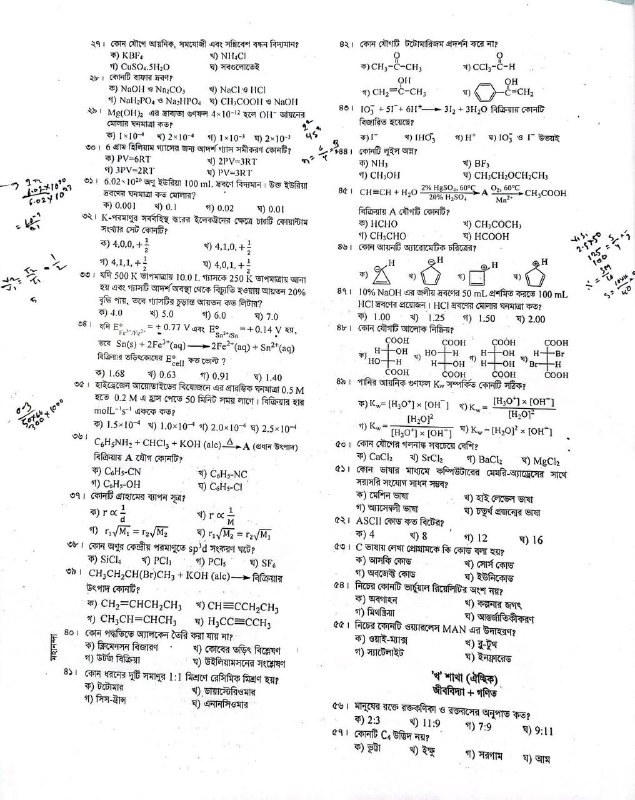 ২৭। কোন যৌগে আয়নিক, সমযোজী এবং সন্নিবেশ বন্ধন বিদ্যমান?
ক) KBF₄ খ) NH₄Cl
গ) CuSO₄.5H₂O ঘ) সবগুলোতেই
২৮। কোনটি বাফার দ্রবণ?
ক) NaOH ও Na₂CO₃ খ) NaCl ও HCl
গ) NaH₂PO₄ ও Na₂HPO₄ ঘ) CH₃COOH ও NaOH
২৯। Mg(OH)₂ এর দ্রাব্যতা গুণফল 4×10⁻¹² হলে OH⁻ আয়নের
মোলার ঘনমাত্রা কত?
ক) 1×10⁻⁴ খ) 2×10⁻⁴ গ) 1×10⁻³ ঘ) 2×10⁻³
৩০। 6 গ্রাম হিলিয়াম গ্যাসের জন্য আদর্শ গ্যাস সমীকরণ কোনটি?
ক) PV=6RT খ) 2PV=3RT
গ) 3PV=2RT ঘ) PV=3RT
৩১। 6.02×10²⁰ অণু ইউরিয়া 100 mL দ্রবণে বিদ্যমান। উক্ত ইউরিয়া
দ্রবণের ঘনমাত্রা কত মোলার?
ক) 0.001 খ) 0.1 গ) 0.02 ঘ) 0.01
৩২। K-পরমাণুর সর্ববহিস্থ স্তরের ইলেকট্রনের ক্ষেত্রে চারটি কোয়ান্টাম
সংখ্যার সেট কোনটি?
ক) 4,0,0,+1/2 খ) 4,1,0,+1/2
গ) 4,1,1,+1/2 ঘ) 4,0,1,+1/2
৩৩। যদি 500 K তাপমাত্রায় 10.0 L গ্যাসকে 250 K তাপমাত্রায় আনা
হয় এবং গ্যাসটি আদর্শ অবস্থা থেকে বিচ্যুতি হওয়ায় আয়তন 20%
বৃদ্ধি পায়, তবে গ্যাসটির চূড়ান্ত আয়তন কত লিটার?
ক) 4.0 খ) 5.0 গ) 6.0 ঘ) 7.0
৩৪। যদি E°Fe³⁺/Fe²⁺ = + 0.77 V এবং E°Sn²⁺/Sn = + 0.14 V হয়,
তবে Sn(s) + 2Fe³⁺(aq) ⟶ 2Fe²⁺(aq) + Sn²⁺(aq)
বিক্রিয়ার তড়িৎকোষের E°cell কত ভোল্ট?
ক) 1.68 খ) 0.63 গ) 0.91 ঘ) 1.40
৩৫। হাইড্রোজেন আয়োডাইডের বিযোজনে এর প্রারম্ভিক ঘনমাত্রা 0.5 M
হতে 0.2 M এ হ্রাস পেতে 50 মিনিট সময় লাগে। বিক্রিয়ার হার
molL⁻¹s⁻¹ এককে কত?
ক) 1.5×10⁻⁴ খ) 1.0×10⁻⁴ গ) 2.0×10⁻⁴ ঘ) 2.5×10⁻⁴
৩৬। C₆H₅NH₂ + CHCl₃ + KOH (alc) ⟶Δ A (প্রধান উৎপাদ)
বিক্রিয়ার A যৌগ কোনটি?
ক) C₆H₅-CN খ) C₆H₅-NC
গ) C₆H₅-OH ঘ) C₆H₅-Cl
৩৭। কোনটি গ্রাহামের ব্যাপন সূত্র?
ক) r ∝ 1/d খ) r ∝ 1/M
গ) r₁√M₁ = r₂√M₂ ঘ) r₁√M₂ = r₂√M₁
৩৮। কোন অণুর কেন্দ্রীয় পরমাণুতে sp³d সংকরণ ঘটে?
ক) SiCl₄ খ) PCl₃ গ) PCl₅ ঘ) SF₆
৩৯। CH₃CH₂CH(Br)CH₃ + KOH (alc) ⟶ বিক্রিয়ার
উৎপাদ কোনটি?
ক) CH₂=CHCH₂CH₃ খ) CH≡CCH₂CH₃
গ) CH₃CH=CHCH₃ ঘ) H₃CC≡CCH₃
৪০। কোন পদ্ধতিতে অ্যালকেন তৈরি করা যায় না?
ক) ক্লিমেনসন বিজারণ খ) কোবের তড়িৎ বিশ্লেষণ
গ) উর্টজ বিক্রিয়া ঘ) উইলিয়ামসনের সংশ্লেষণ
৪১। কোন ধরনের দুটি সমাণুর 1:1 মিশ্রণে রেসিমিক মিশ্রণ হয়?
ক) টটোমার খ) ডায়াস্টেরিওমার
গ) সিস-ট্রান্স ঘ) এনানসিওমার
৪২। কোন যৌগটি টটোমারিজম প্রদর্শন করে না?
ক) CH₃-C(=O)-CH₃ খ) CCl₃-C(=O)-H
গ) CH₂=C(OH)-CH₃ ঘ) C(OH)=CH₂
৪৩। IO₃⁻ + 5I⁻ + 6H⁺ ⟶ 3I₂ + 3H₂O বিক্রিয়ায় কোনটি
বিজারিত হয়েছে?
ক) I⁻ খ) IO₃⁻ গ) H⁺ ঘ) IO₃⁻ ও I⁻ উভয়ই
৪৪। কোনটি লুইস অম্ল?
ক) NH₃ খ) BF₃
গ) CH₃OH ঘ) CH₃CH₂OCH₂CH₃
৪৫। CH≡CH + H₂O 2% HgSO₄, 60°C / 20% H₂SO₄ ⟶ A O₂, 60°C / Mn²⁺ ⟶ CH₃COOH
বিক্রিয়ায় A যৌগটি কোনটি?
ক) HCHO খ) CH₃COCH₃
গ) CH₃CHO ঘ) HCOOH
৪৬। কোন আয়নটি অ্যারোমেটিক চরিত্রের?
ক) খ) গ) ঘ)
৪৭। 10% NaOH এর জলীয় দ্রবণের 50 mL প্রশমিত করতে 100 mL
HCl দ্রবণের প্রয়োজন। HCl দ্রবণের মোলার ঘনমাত্রা কত?
ক) 1.00 খ) 1.25 গ) 1.50 ঘ) 2.00
৪৮। কোন যৌগটি আলোক নিষ্ক্রিয়?
COOH COOH COOH COOH
ক) H OH HO H খ) HO H H OH গ) H OH H OH ঘ) H Br H Br
COOH COOH COOH COOH
৪৯। পানির আয়নিক গুণফল Kw সম্পর্কিত কোনটি সঠিক?
ক) Kw= [H₃O⁺] × [OH⁻] খ) Kw = [H₃O⁺] × [OH⁻]/[H₂O]²
গ) Kw = [H₂O]²/[H₃O⁺] × [OH⁻] ঘ) Kw= [H₂O]² × [OH⁻]
৫০। কোন যৌগের গলনাঙ্ক সবচেয়ে বেশি?
ক) CaCl₂ খ) SrCl₂ গ) BaCl₂ ঘ) MgCl₂
৫১। কোন ভাষার মাধ্যমে কম্পিউটারের মেমরি-অ্যাড্রেসের সাথে
সরাসরি সংযোগ সাধন সম্ভব?
ক) মেশিন ভাষা খ) হাই লেভেল ভাষা
গ) অ্যাসেম্বলী ভাষা ঘ) চতুর্থ প্রজন্মের ভাষা
৫২। ASCII কোড কত বিটের?
ক) 4 খ) 8 গ) 12 ঘ) 16
৫৩। C ভাষায় লেখা প্রোগ্রামকে কি কোড বলা হয়?
ক) আসকি কোড খ) সোর্স কোড
গ) অবজেক্ট কোড ঘ) ইউনিকোড
৫৪। নিচের কোনটি ভার্চুয়াল রিয়েলিটির অংশ নয়?
ক) অবগাহন খ) কল্পনার জগৎ
গ) মিথস্ক্রিয়া ঘ) আন্তর্জাতিকীকরণ
৫৫। নিচের কোনটি ওয়্যারলেস MAN এর উদাহরণ?
ক) ওয়াই-ম্যাক্স খ) ব্লু-টুথ
গ) স্যাটেলাইট ঘ) ইনফ্রারেড
'খ' শাখা (ঐচ্ছিক)
জীববিদ্যা + গণিত
৫৬। মানুষের রক্তে রক্তকণিকা ও রক্তরসের অনুপাত কত?
ক) 2:3 খ) 11:9 গ) 7:9 ঘ) 9:11
৫৭। কোনটি C₄ উদ্ভিদ নয়?
ক) ভুট্টা খ) ইক্ষু গ) সরগাম ঘ) আম